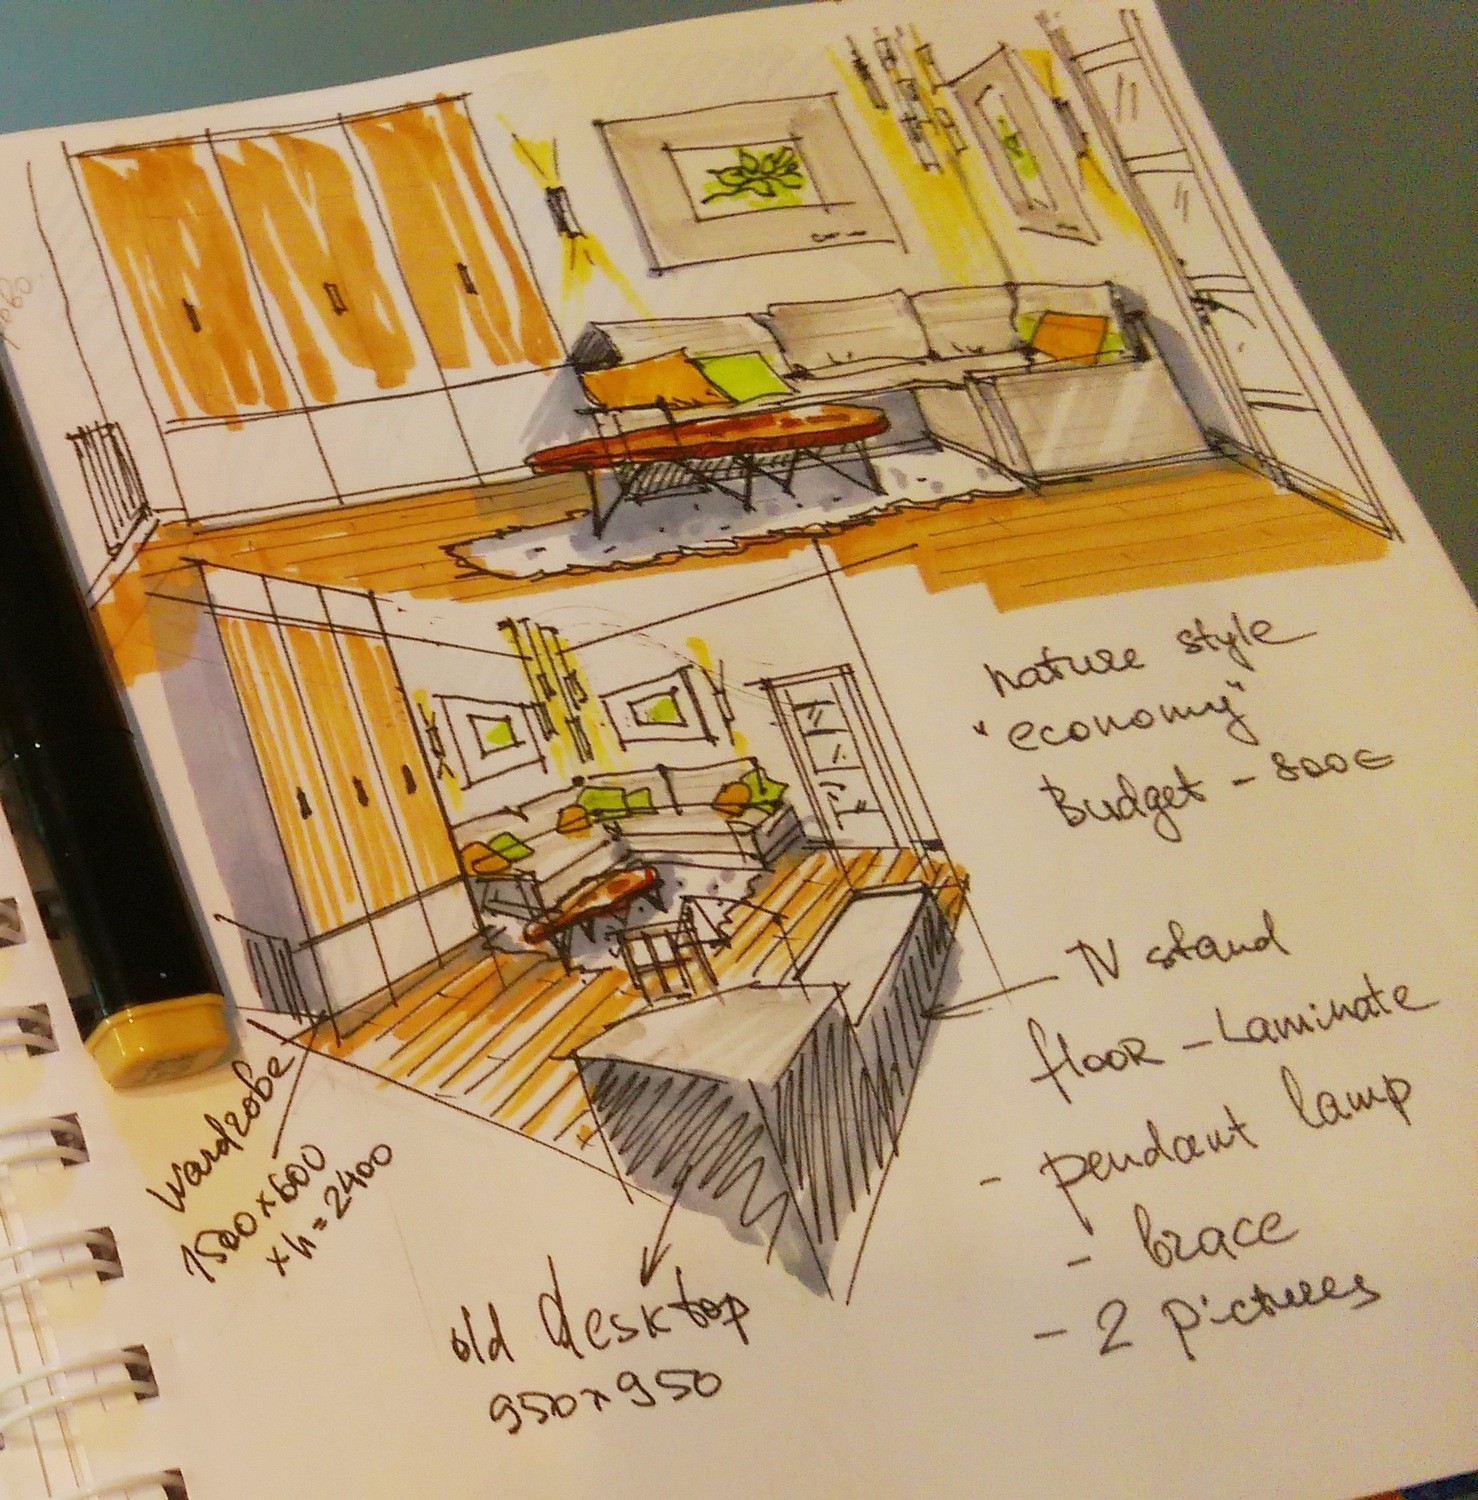 nature style
"economy"
Budget - 800€
TV stand
floor - Laminate
- pendant lamp
- brace
- 2 pictures
wardrobe
1500x600
x h=2400
old desktop
950x950